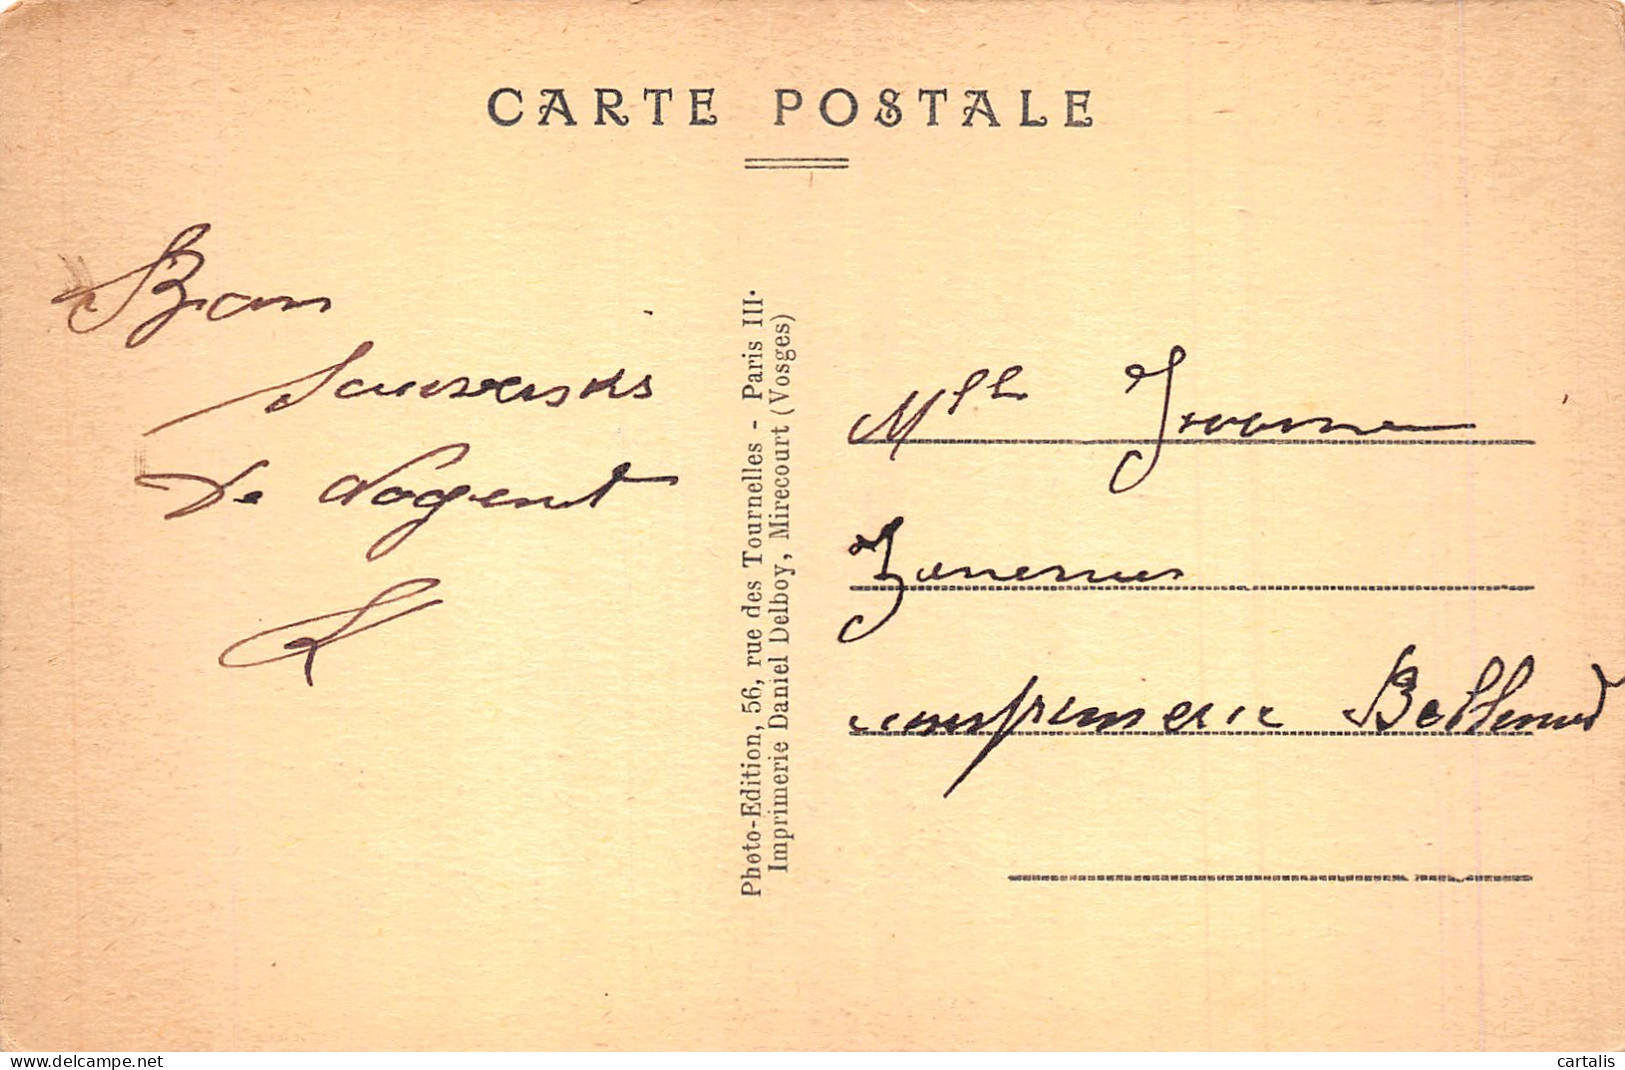 CARTE POSTALE
Bon
Souvenirs
De Nogent
Photo-Edition, 56, rue des Tournelles - Paris III.
Imprimerie Daniel Delboy, Mirecourt (Vosges)
Mlle Yvonne
imprimerie
cartalis